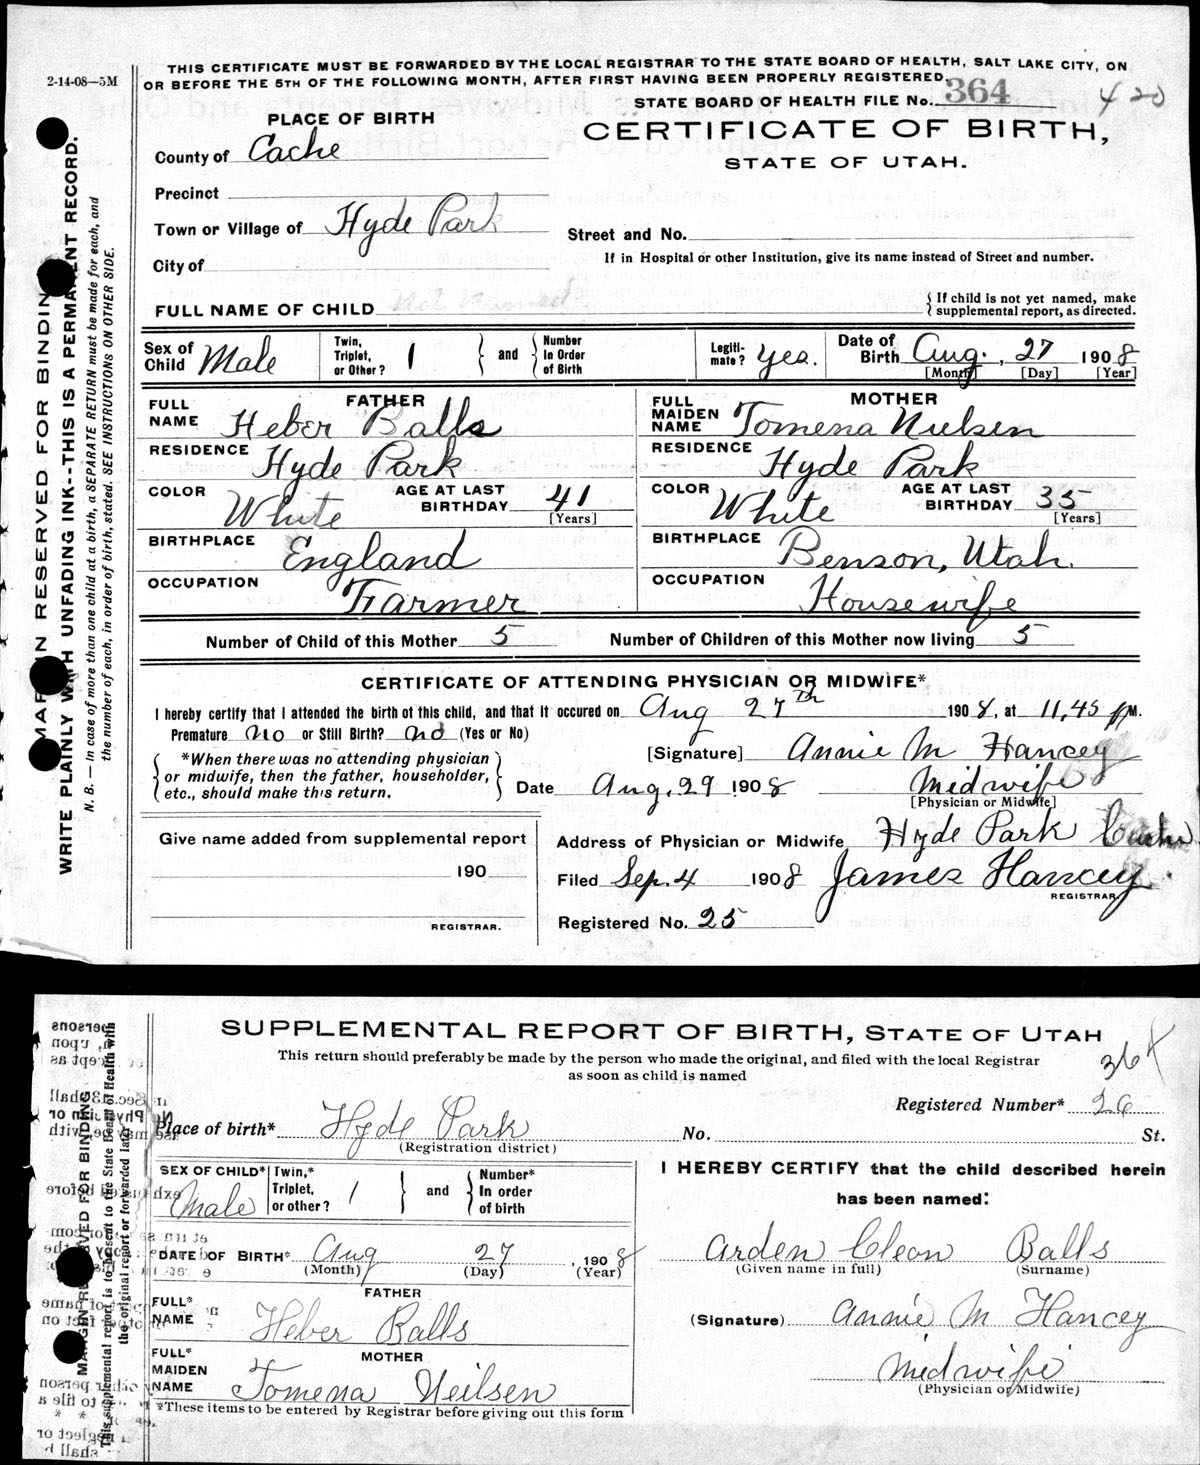 2-14-08—5M
THIS CERTIFICATE MUST BE FORWARDED BY THE LOCAL REGISTRAR TO THE STATE BOARD OF HEALTH, SALT LAKE CITY, ON
OR BEFORE THE 5TH OF THE FOLLOWING MONTH, AFTER FIRST HAVING BEEN PROPERLY REGISTERED.
STATE BOARD OF HEALTH FILE No. 364 420
PLACE OF BIRTH
CERTIFICATE OF BIRTH,
STATE OF UTAH.
County of Cache
Precinct
Town or Village of Hyde Park
Street and No.
City of
If in Hospital or other Institution, give its name instead of Street and number.
FULL NAME OF CHILD Not Named
{ If child is not yet named, make
supplemental report, as directed.
Sex of Child Male Twin, Triplet, or Other? 1 } and { Number In Order of Birth Legiti-mate? yes. Date of Birth Aug., 27 1908
[Month] [Day] [Year]
FATHER MOTHER
FULL NAME Heber Balls FULL MAIDEN NAME Tomena Nielsen
RESIDENCE Hyde Park RESIDENCE Hyde Park
COLOR White AGE AT LAST BIRTHDAY 41 [Years] COLOR White AGE AT LAST BIRTHDAY 35 [Years]
BIRTHPLACE England BIRTHPLACE Benson, Utah.
OCCUPATION Farmer OCCUPATION Housewife
Number of Child of this Mother 5 Number of Children of this Mother now living 5
CERTIFICATE OF ATTENDING PHYSICIAN OR MIDWIFE*
I hereby certify that I attended the birth of this child, and that it occured on Aug 27th 1908, at 11,45 P M.
Premature No or Still Birth? no (Yes or No)
[Signature] Annie M Hancey
{ *When there was no attending physician
or midwife, then the father, householder,
etc., should make this return. }
Date Aug, 29 1908 Midwife
[Physician or Midwife]
Give name added from supplemental report
190
REGISTRAR.
Address of Physician or Midwife Hyde Park Cache
Filed Sep. 4 1908 James Hancey
REGISTRAR
Registered No. 25
MARGIN RESERVED FOR BINDING
WRITE PLAINLY WITH UNFADING INK--THIS IS A PERMANENT RECORD.
N. B.—In case of more than one child at a birth, a SEPARATE RETURN must be made for each, and
the number of each, in order of birth, stated. SEE INSTRUCTIONS ON OTHER SIDE.
SUPPLEMENTAL REPORT OF BIRTH, STATE OF UTAH
This return should preferably be made by the person who made the original, and filed with the local Registrar
as soon as child is named
364
Registered Number* 26
Place of birth* Hyde Park No. St.
(Registration district)
SEX OF CHILD* Male Twin,* Triplet, or other? 1 } and { Number* In order of birth
DATE OF BIRTH* Aug 27, 1908
(Month) (Day) (Year)
FATHER
FULL* NAME Heber Balls
MOTHER
FULL* MAIDEN NAME Tomena Neilsen
*These items to be entered by Registrar before giving out this form
I HEREBY CERTIFY that the child described herein
has been named:
Arden Cleon Balls
(Given name in full) (Surname)
(Signature) Annie M Hancey
Midwife
(Physician or Midwife)
MARGIN RESERVED FOR BINDING
This supplemental report is to be sent to the State Board of Health with
the original report or forwarded later